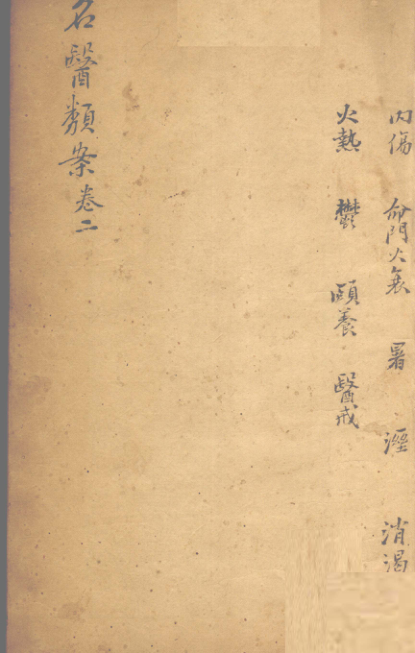 内傷 命門火衰 暑 溼 消渴
火熱 鬱 頤養 醫戒
名醫類案卷二